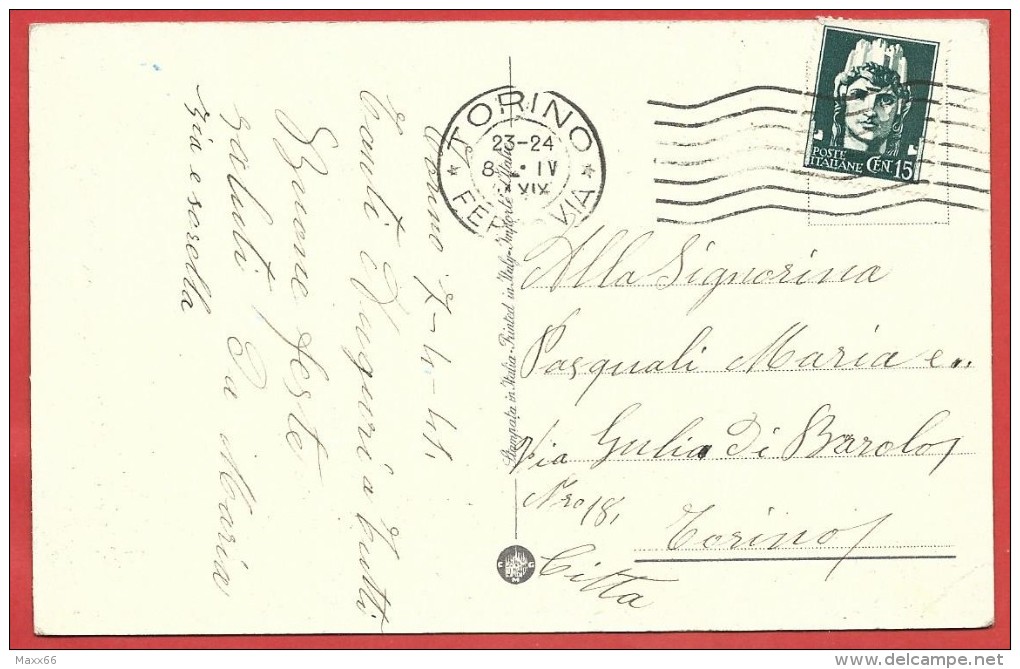 Torino 7-4-41,
Tanti Auguri a tutti
Buone feste
saluti da Maria
zia e sorella
TORINO
23-24
8 IV
XIX
FER VIA
POSTE
ITALIANE CEN. 15
Stampata in Italia-Printed in Italy-Imprimé
Alla Signorina
Pasquali Maria e..
Via Gulia Di Barolo,
Nro 18,
Torino
Citta
Maxx66
delcampe.net